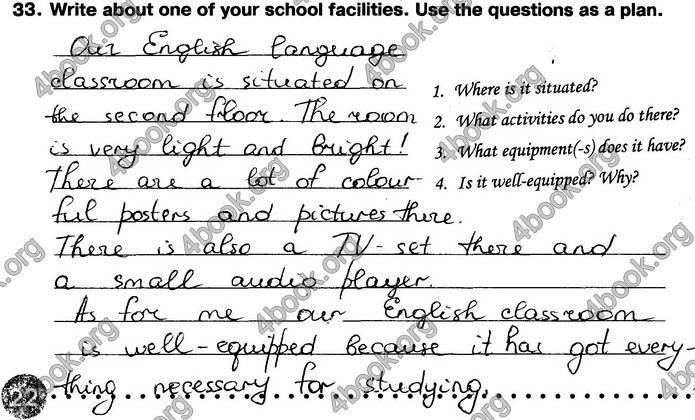 33. Write about one of your school facilities. Use the questions as a plan.
Our English language
classroom is situated on
the second floor. The room
is very light and bright!
There are a lot of colour-
ful posters and pictures there.
There is also a TV-set there and
a small audio player.
As for me our English classroom
is well-equipped because it has got every-
thing necessary for studying.
1. Where is it situated?
2. What activities do you do there?
3. What equipment(-s) does it have?
4. Is it well-equipped? Why?
22
4book.org